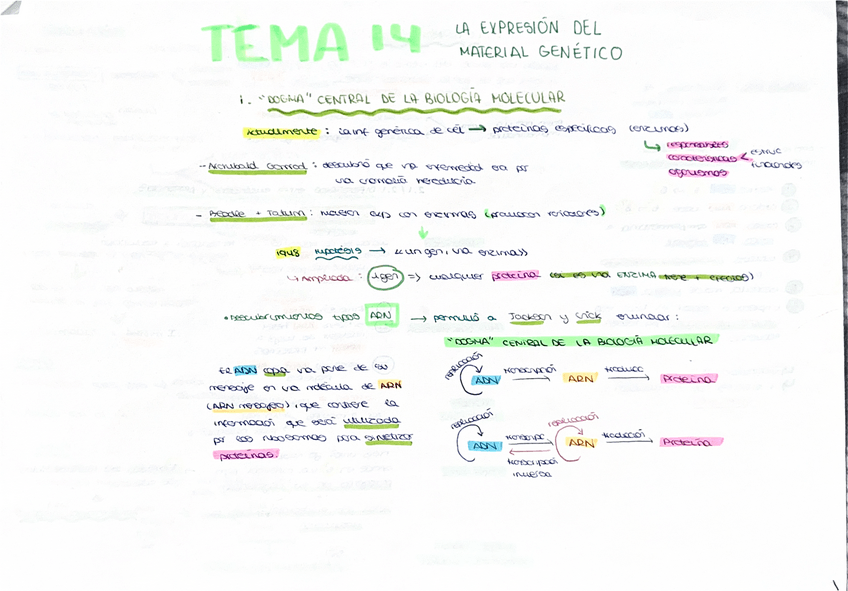 TEMA 14
LA EXPRESIÓN DEL
MATERIAL GENÉTICO
1. "DOGMA" CENTRAL DE LA BIOLOGÍA MOLECULAR
Actualmente: la inf genética de cél → proteínas específicas (enzimas)
↳ responsables
características < estruc
funcionales
organismos
- Archibald Garrod: descubrió que una enfermedad era por
una anomalía hereditaria
- Beadle + Tatum: hicieron exps con enzimas
↓
1948 hipótesis → «un gen, una enzima»
↳ Ampliada: 1 gen => cualquier proteína
• Descubrimientos tipos ADN → permitió a Jackson y Crick enunciar:
"DOGMA" CENTRAL DE LA BIOLOGÍA MOLECULAR
El ADN copia una parte de su
mensaje en una molécula de ARN
(ARN mensajero), que contiene la
información que será utilizada
por los ribosomas para sintetizar
proteínas.
replicación
ADN transcripción → ARN traducc → Proteína
replicación replicación
ADN transcripc → ARN traducción → Proteína
transcripción
inversa